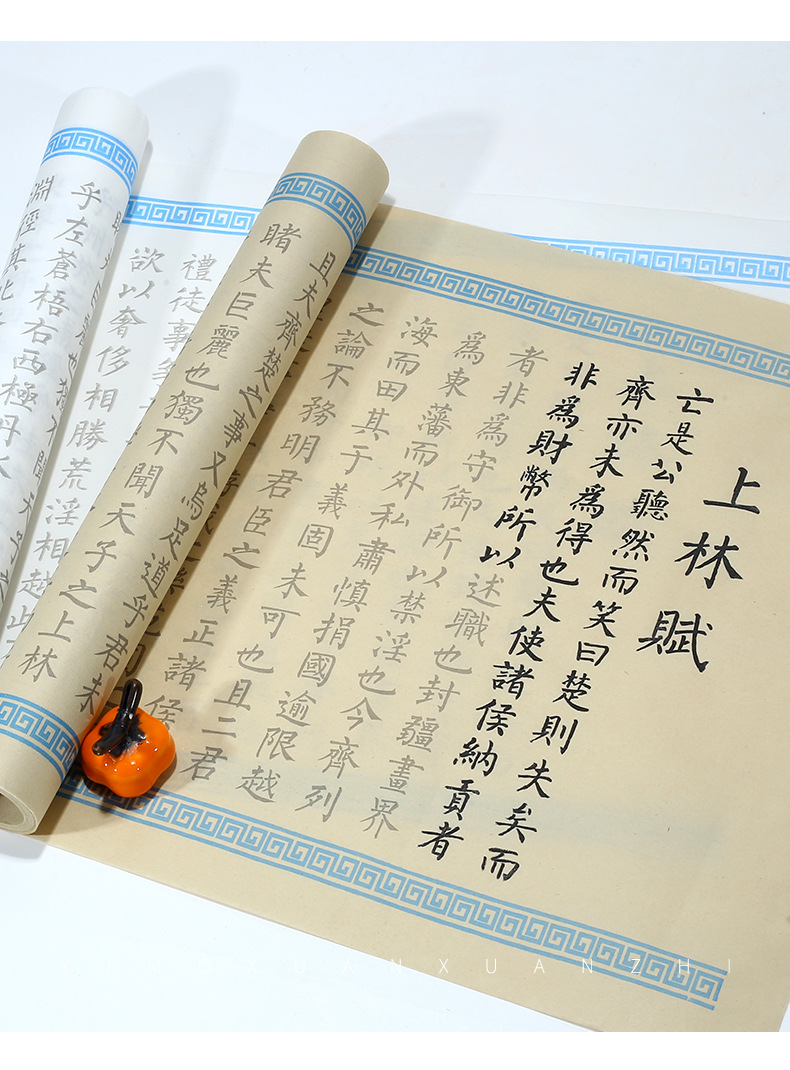 上林賦
亡是公聽然而笑曰楚則失矣而
齊亦未爲得也夫使諸侯納貢者
非爲財幣所以述職也封疆畫界
者非爲守御所以禁淫也今齊列
爲東藩而外私肅慎捐國逾限越
海而田其于義固未可也且二君
之論不務明君臣之義正諸侯
且夫齊楚之事又烏足道乎君未
睹夫巨麗也獨不聞天子之上林
禮徒事
欲以奢侈相勝荒淫相越此
乎左蒼梧右西極丹水
淵徑其北
XUANXUANZHI